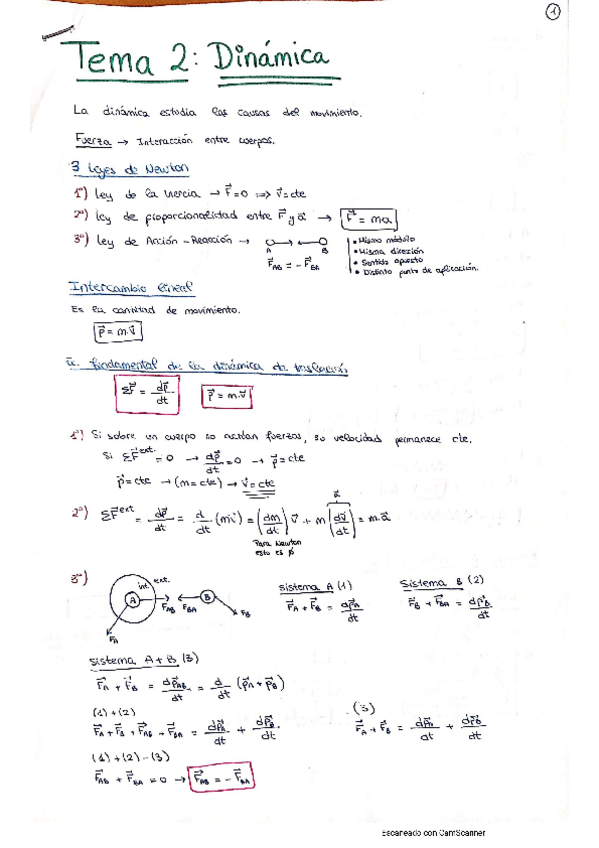 1
Tema 2: Dinámica
La dinámica estudia las causas del movimiento.
Fuerza → Interacción entre cuerpos.
3 leyes de Newton
1º) Ley de la Inercia → F⃗=0 ⇒ v⃗=cte
2º) Ley de proporcionalidad entre F⃗ y a⃗ → F⃗ = ma
3º) Ley de Acción-Reacción → A B
F⃗AB = -F⃗BA
• Mismo módulo
• Misma dirección
• Sentido opuesto
• Distinto punto de aplicación.
Intercambio lineal
Es la cantidad de movimiento.
p⃗ = m.v⃗
Ec. fundamental de la dinámica de traslación
ΣF⃗ = dp⃗/dt p⃗ = m.v⃗
1º) Si sobre un cuerpo no actúan fuerzas, su velocidad permanece cte.
Si ΣF⃗ext. = 0 → dp⃗/dt = 0 → p⃗ = cte
p⃗ = cte → (m = cte) → v⃗ = cte
2º) ΣF⃗ext = dp⃗/dt = d/dt (mv⃗) = (dm/dt) v⃗ + m (dv⃗/dt) = m.a⃗
a⃗
Para Newton
esto es 0
3º) int. ext. A FAB FBA B FB FA
Sistema A (1)
F⃗A + F⃗B = dp⃗A/dt
Sistema B (2)
F⃗B + F⃗BA = dp⃗B/dt
Sistema A+B (3)
F⃗A + F⃗B = dp⃗AB/dt = d/dt (p⃗A + p⃗B)
(1)+(2)
F⃗A + F⃗B + F⃗AB + F⃗BA = dp⃗A/dt + dp⃗B/dt
(3)
F⃗A + F⃗B = dp⃗A/dt + dp⃗B/dt
(1)+(2)-(3)
F⃗AB + F⃗BA = 0 → F⃗AB = -F⃗BA
Escaneado con CamScanner